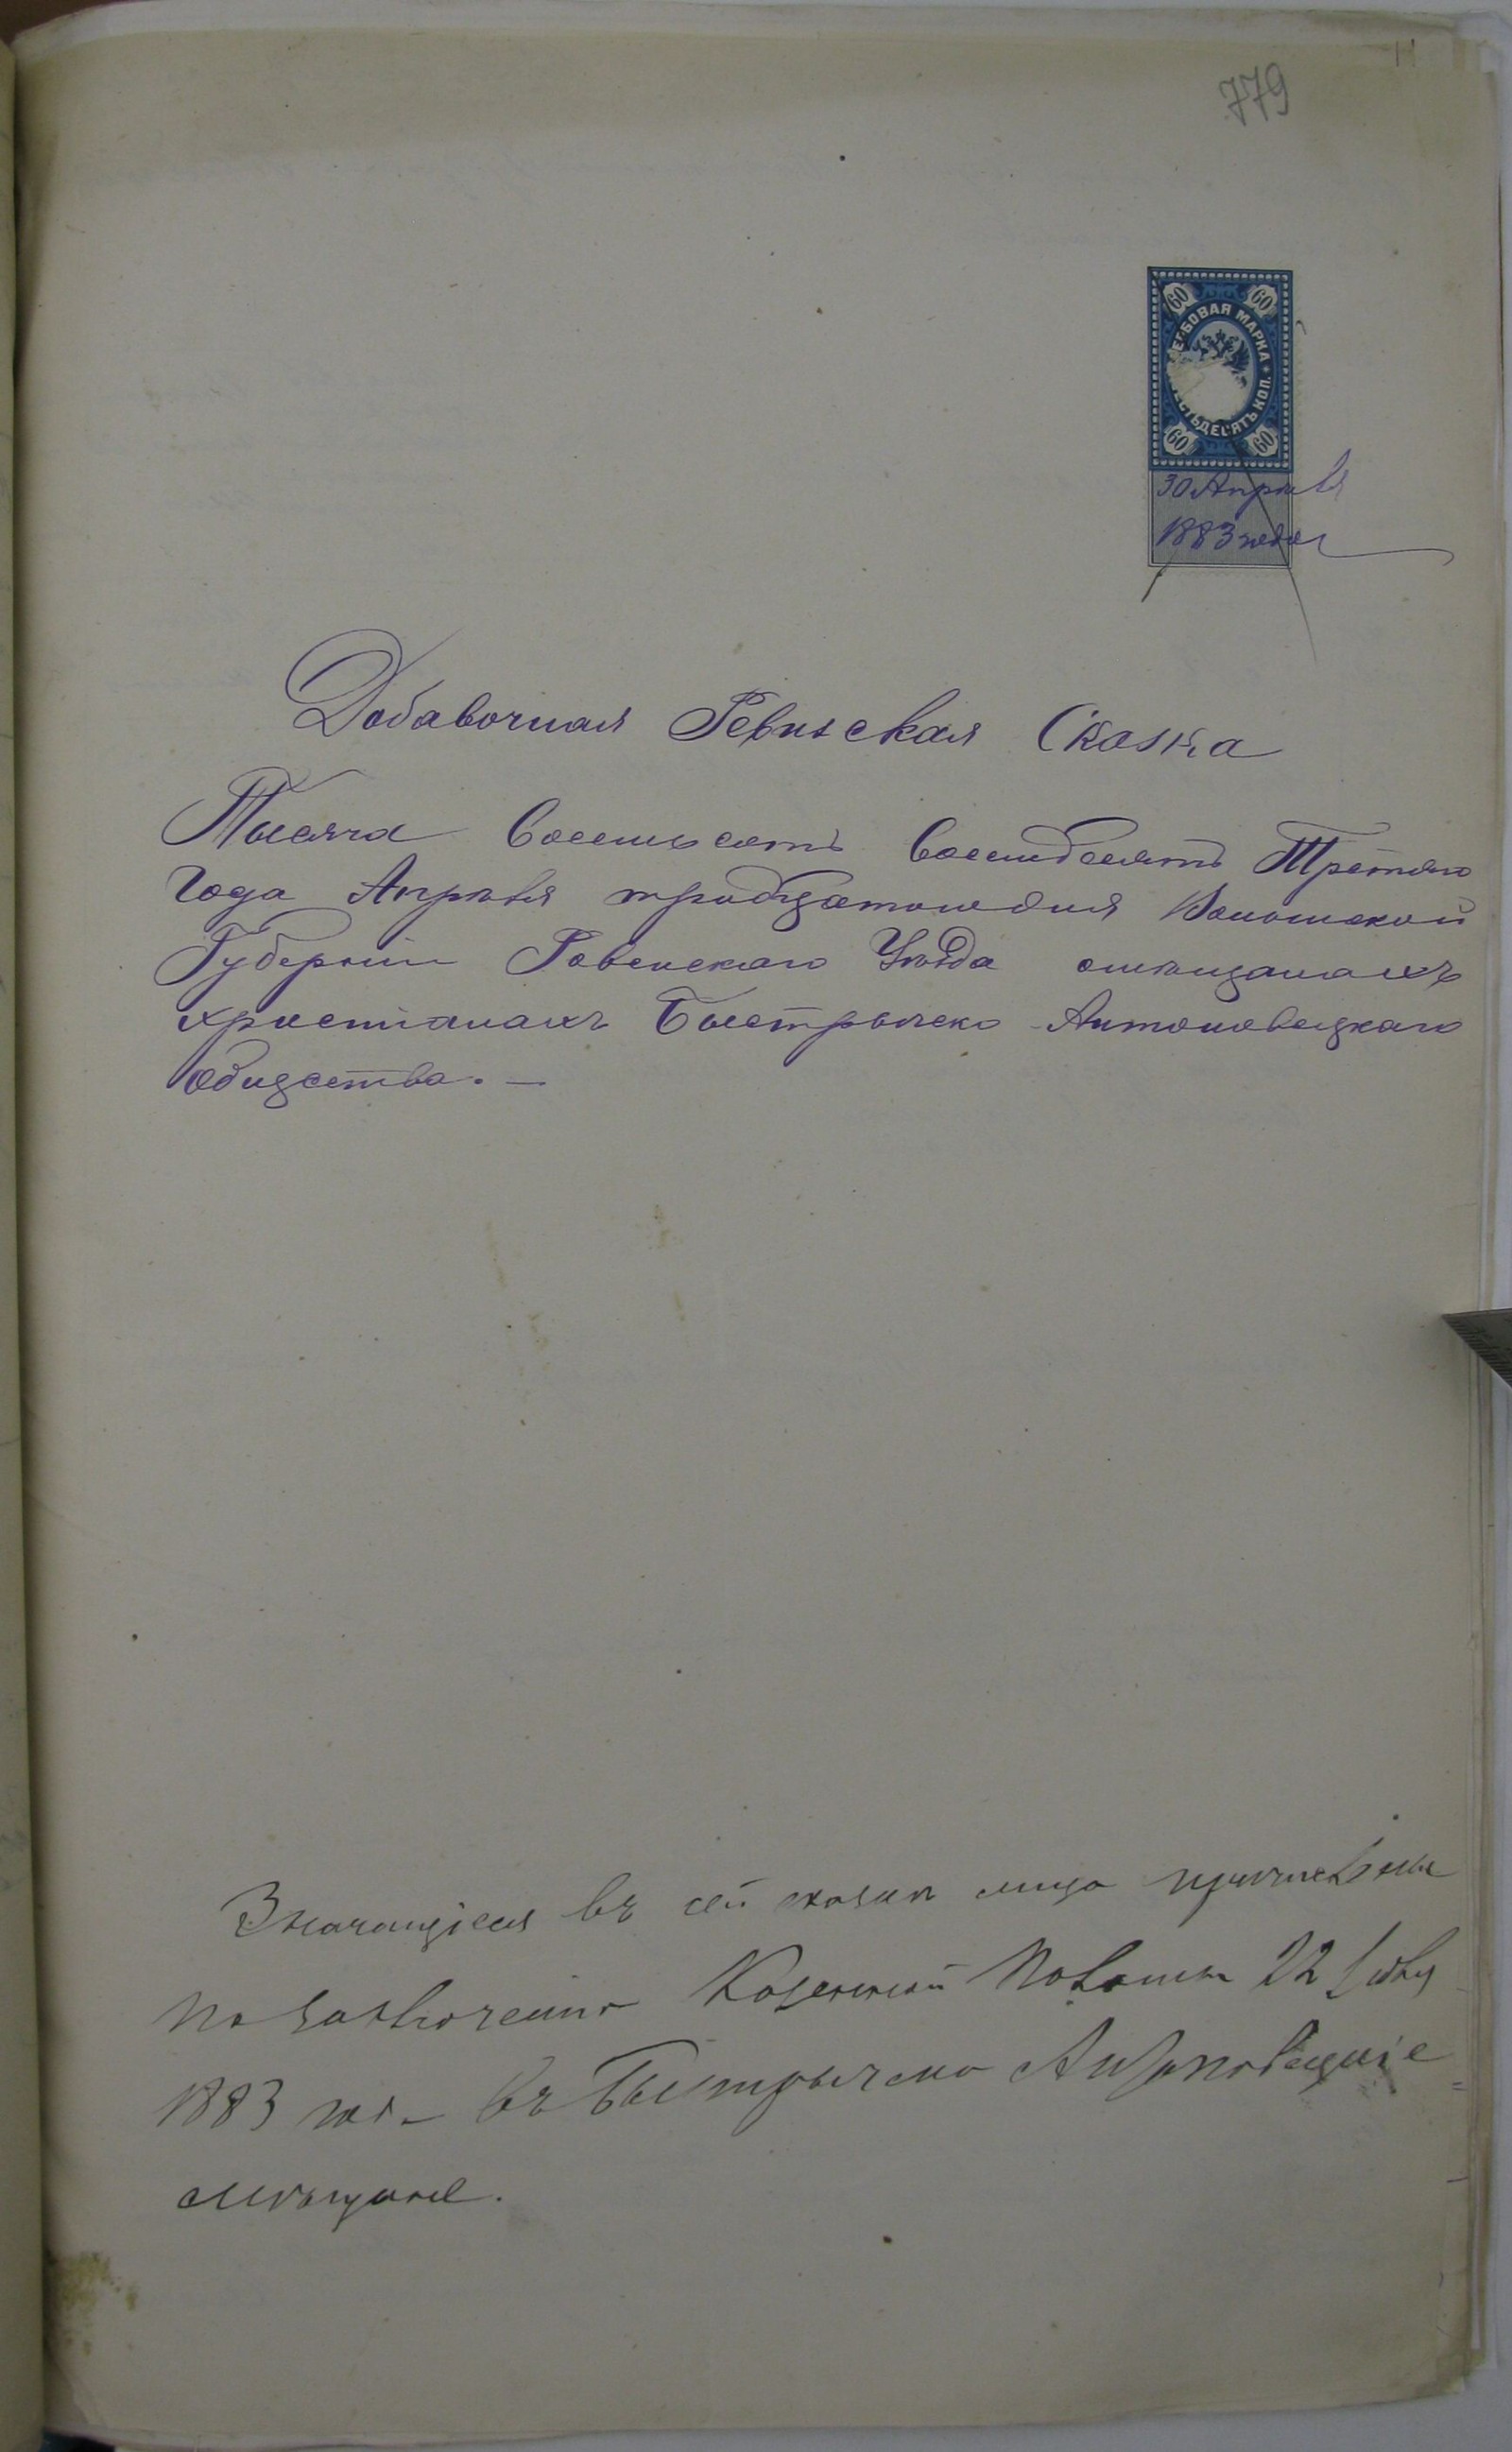 779
60 60
ГЕРБОВАЯ МАРКА
ШЕСТЬДЕСЯТЬ КОП.
60 60
30 Апрѣля
1883 года
Добавочная Ревизская Сказка
Тысяча восемьсотъ восемдесятъ Третяго
Года Апрѣля тридцатого дня Волынской
Губерніи Ровенскаго Уѣзда о мѣщанахъ
христіанахъ Быстрычско-Антоновецкаго
Общества. —
Значащіеся въ сей сказкѣ лица причислены
по заключенію Казенной Палаты 22 Іюля
1883 въ Быстрычско Антоновецкіе
мѣщане.